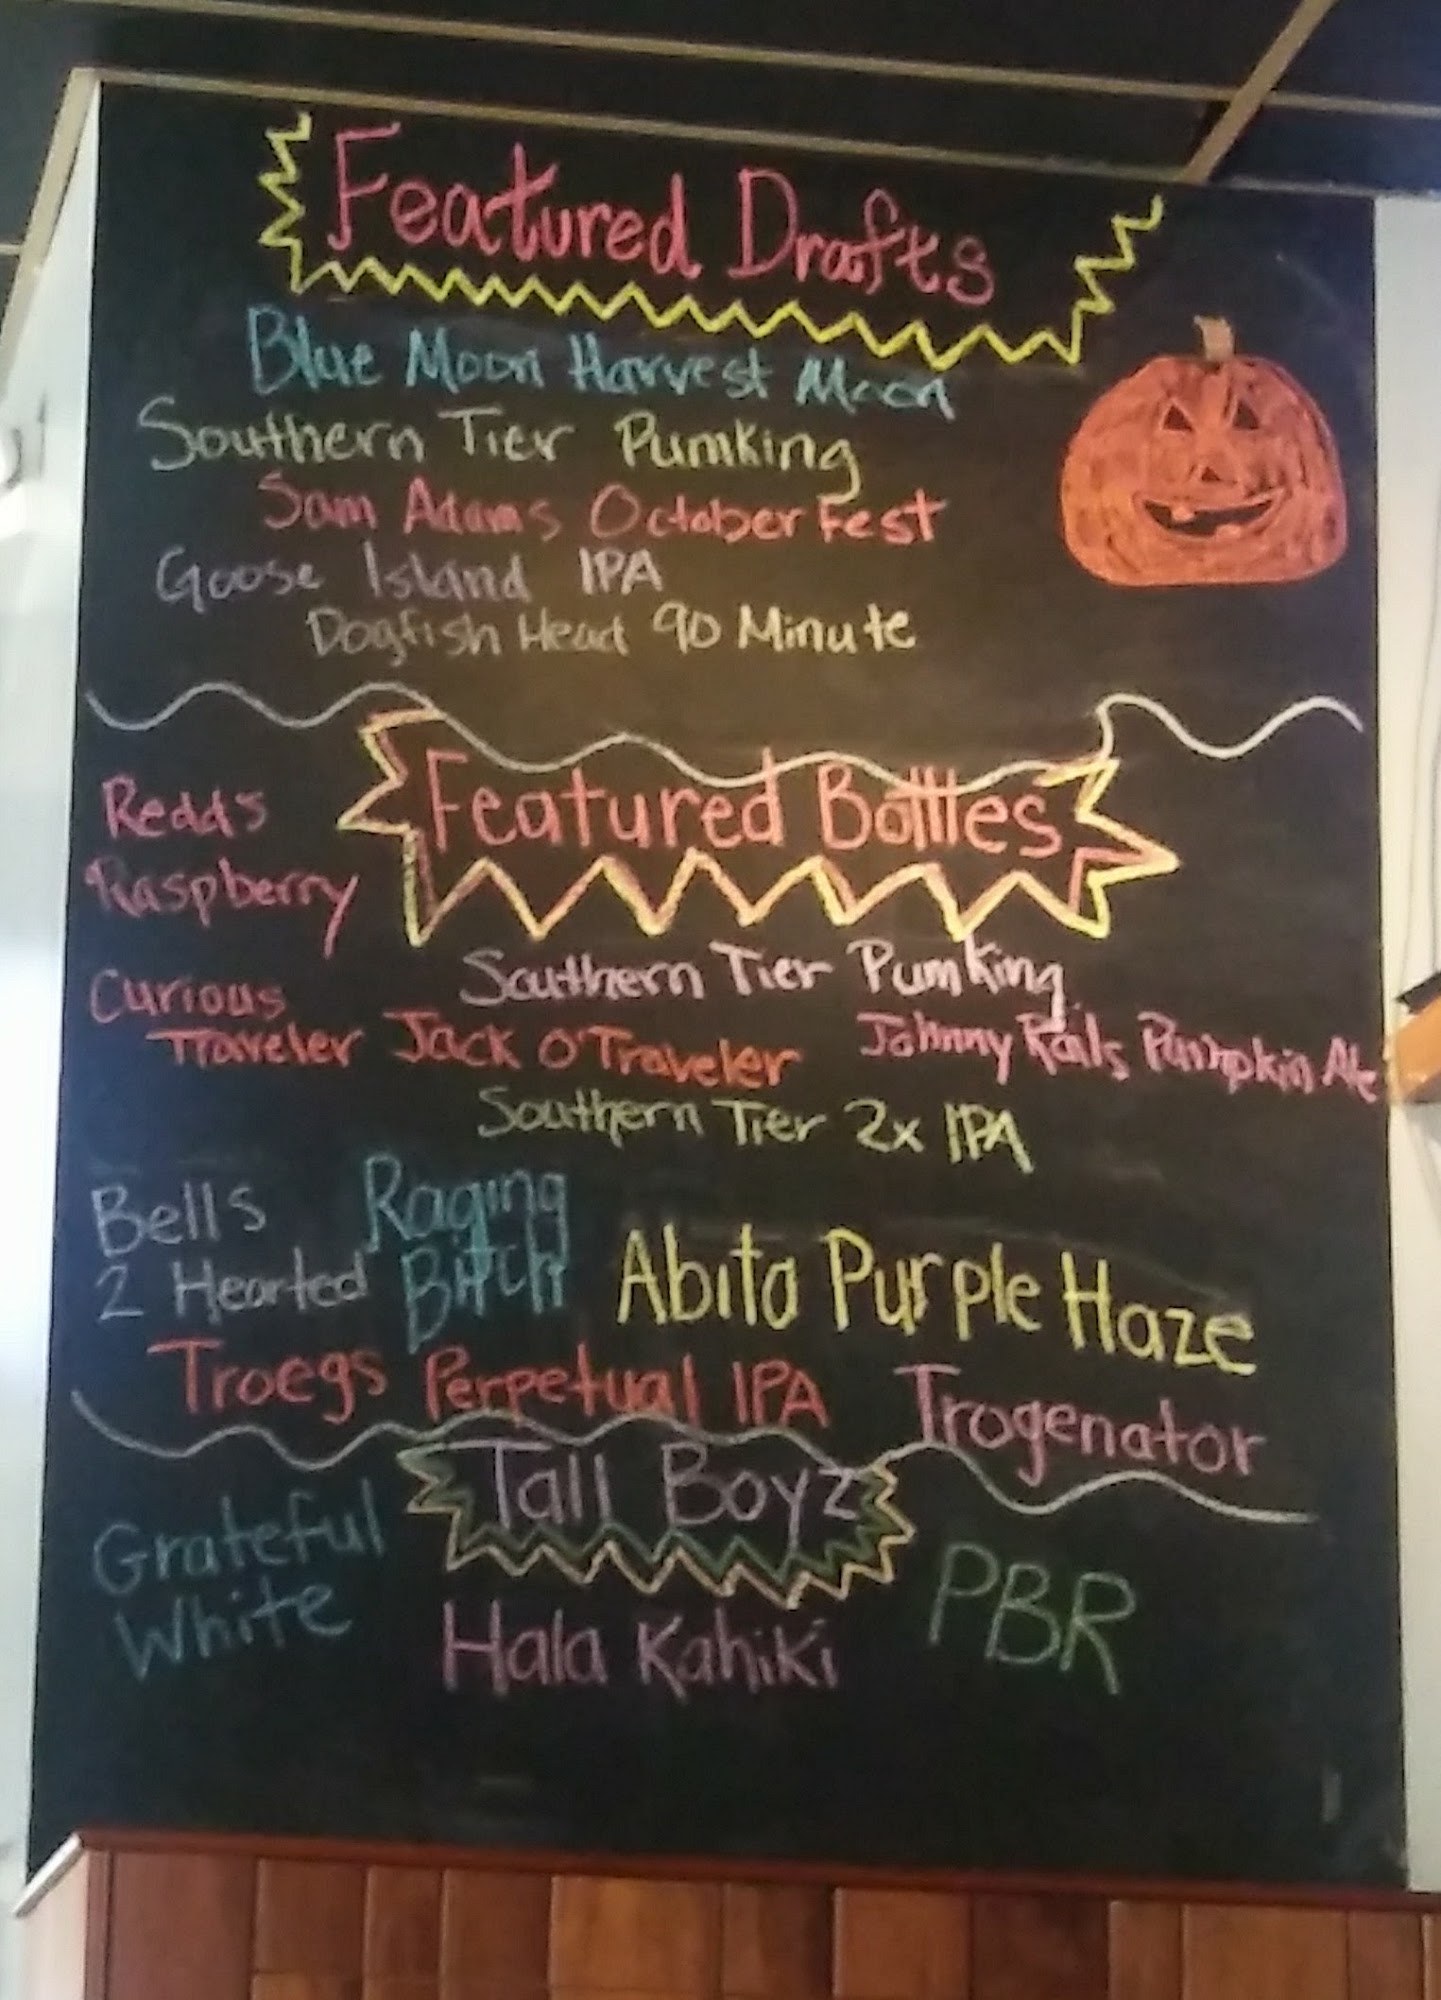 Featured Drafts
Blue Moon Harvest Moon
Southern Tier Pumking
Sam Adams October Fest
Goose Island IPA
Dogfish Head 90 Minute
Featured Bottles
Redd's
Raspberry
Southern Tier Pumking
Curious
Traveler Jack O'Traveler
Johnny Rails Pumpkin Ale
Southern Tier 2x IPA
Bells
2 Hearted
Raging
Bitch
Abita Purple Haze
Troegs Perpetual IPA
Trogenator
Tall Boyz
Grateful
White
Hala Kahiki
PBR